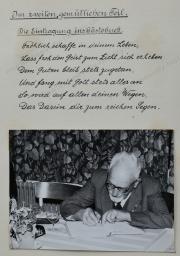 Im zweiten, gemütlichen Teil.
Die Eintragung ins Gästebuch
Fröhlich schaffe in deinem Leben,
Lass froh den Geist zum Licht sich erheben
Dem Guten bleib stets zugetan,
Und fang mit Gott stets alles an
So wird auf allen deinen Wegen,
Das Dasein dir zum reichen Segen.